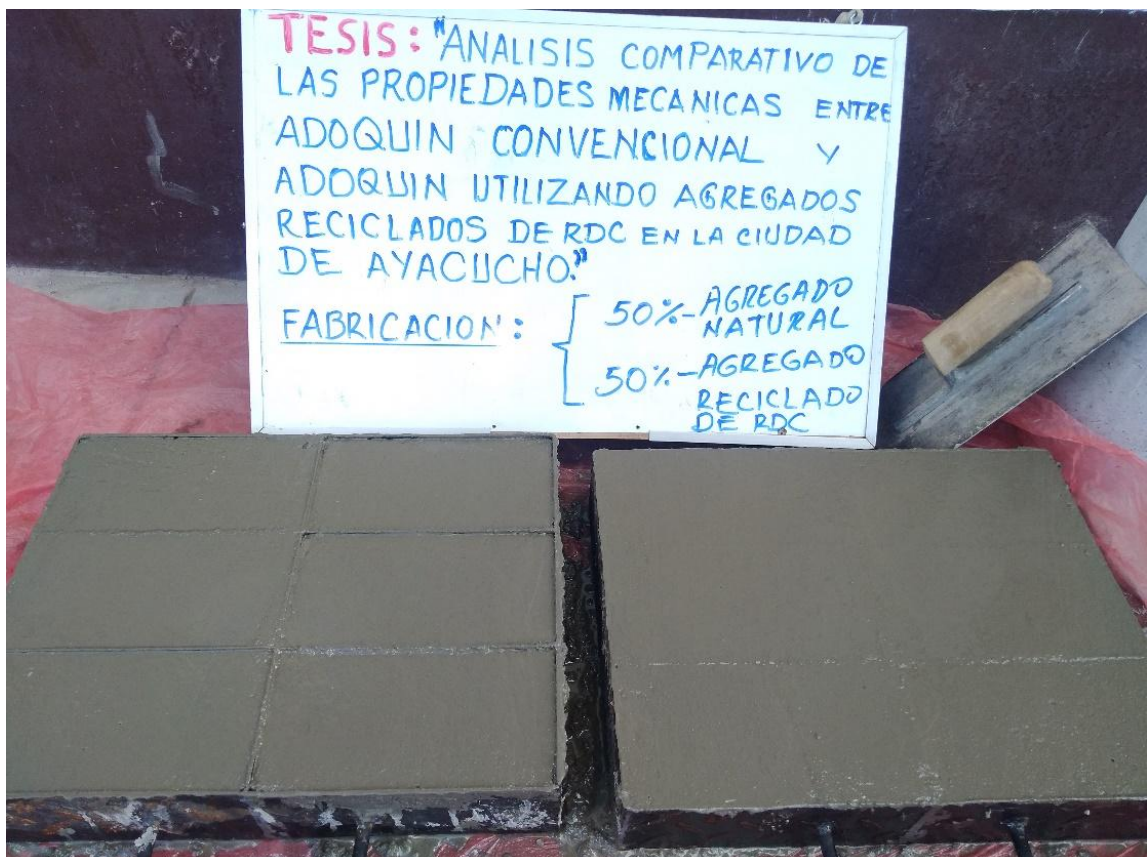 TESIS: "ANALISIS COMPARATIVO DE
LAS PROPIEDADES MECANICAS ENTRE
ADOQUIN CONVENCIONAL Y
ADOQUIN UTILIZANDO AGREGADOS
RECICLADOS DE RDC EN LA CIUDAD
DE AYACUCHO."
FABRICACION: 50%-AGREGADO
NATURAL
50%-AGREGADO
RECICLADO
DE RDC